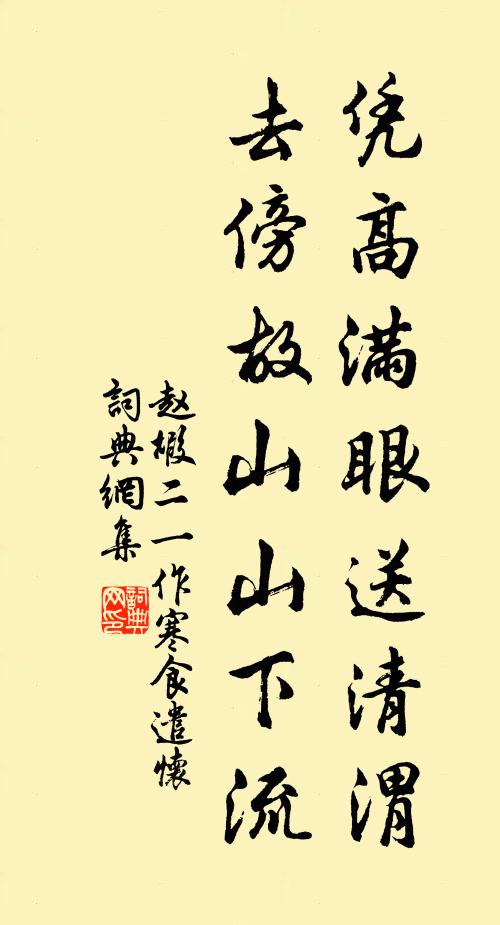 凭高满眼送清渭
去傍故山山下流
赵嘏二一作寒食遣怀
词典網集
詞典网印